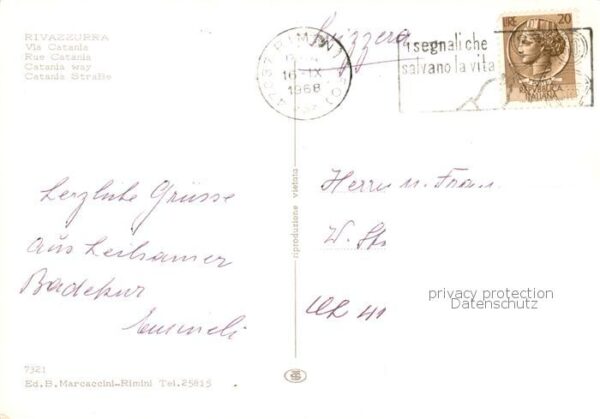 RIVAZZURRA
Via Catania
Rue Catania
Catania way
Catania Straße
Svizzera
RIMINI
16-IX
1968
i segnali che
salvano la vita
LIRE 20
REPVBBLICA
ITALIANA
Herzliche Grüsse
aus heilsamer
Badekur
Herrn u. Frau
W. St
riproduzione vietata
privacy protection
Datenschutz
7321
Ed.B.Marcaccini-Rimini Tel.25815